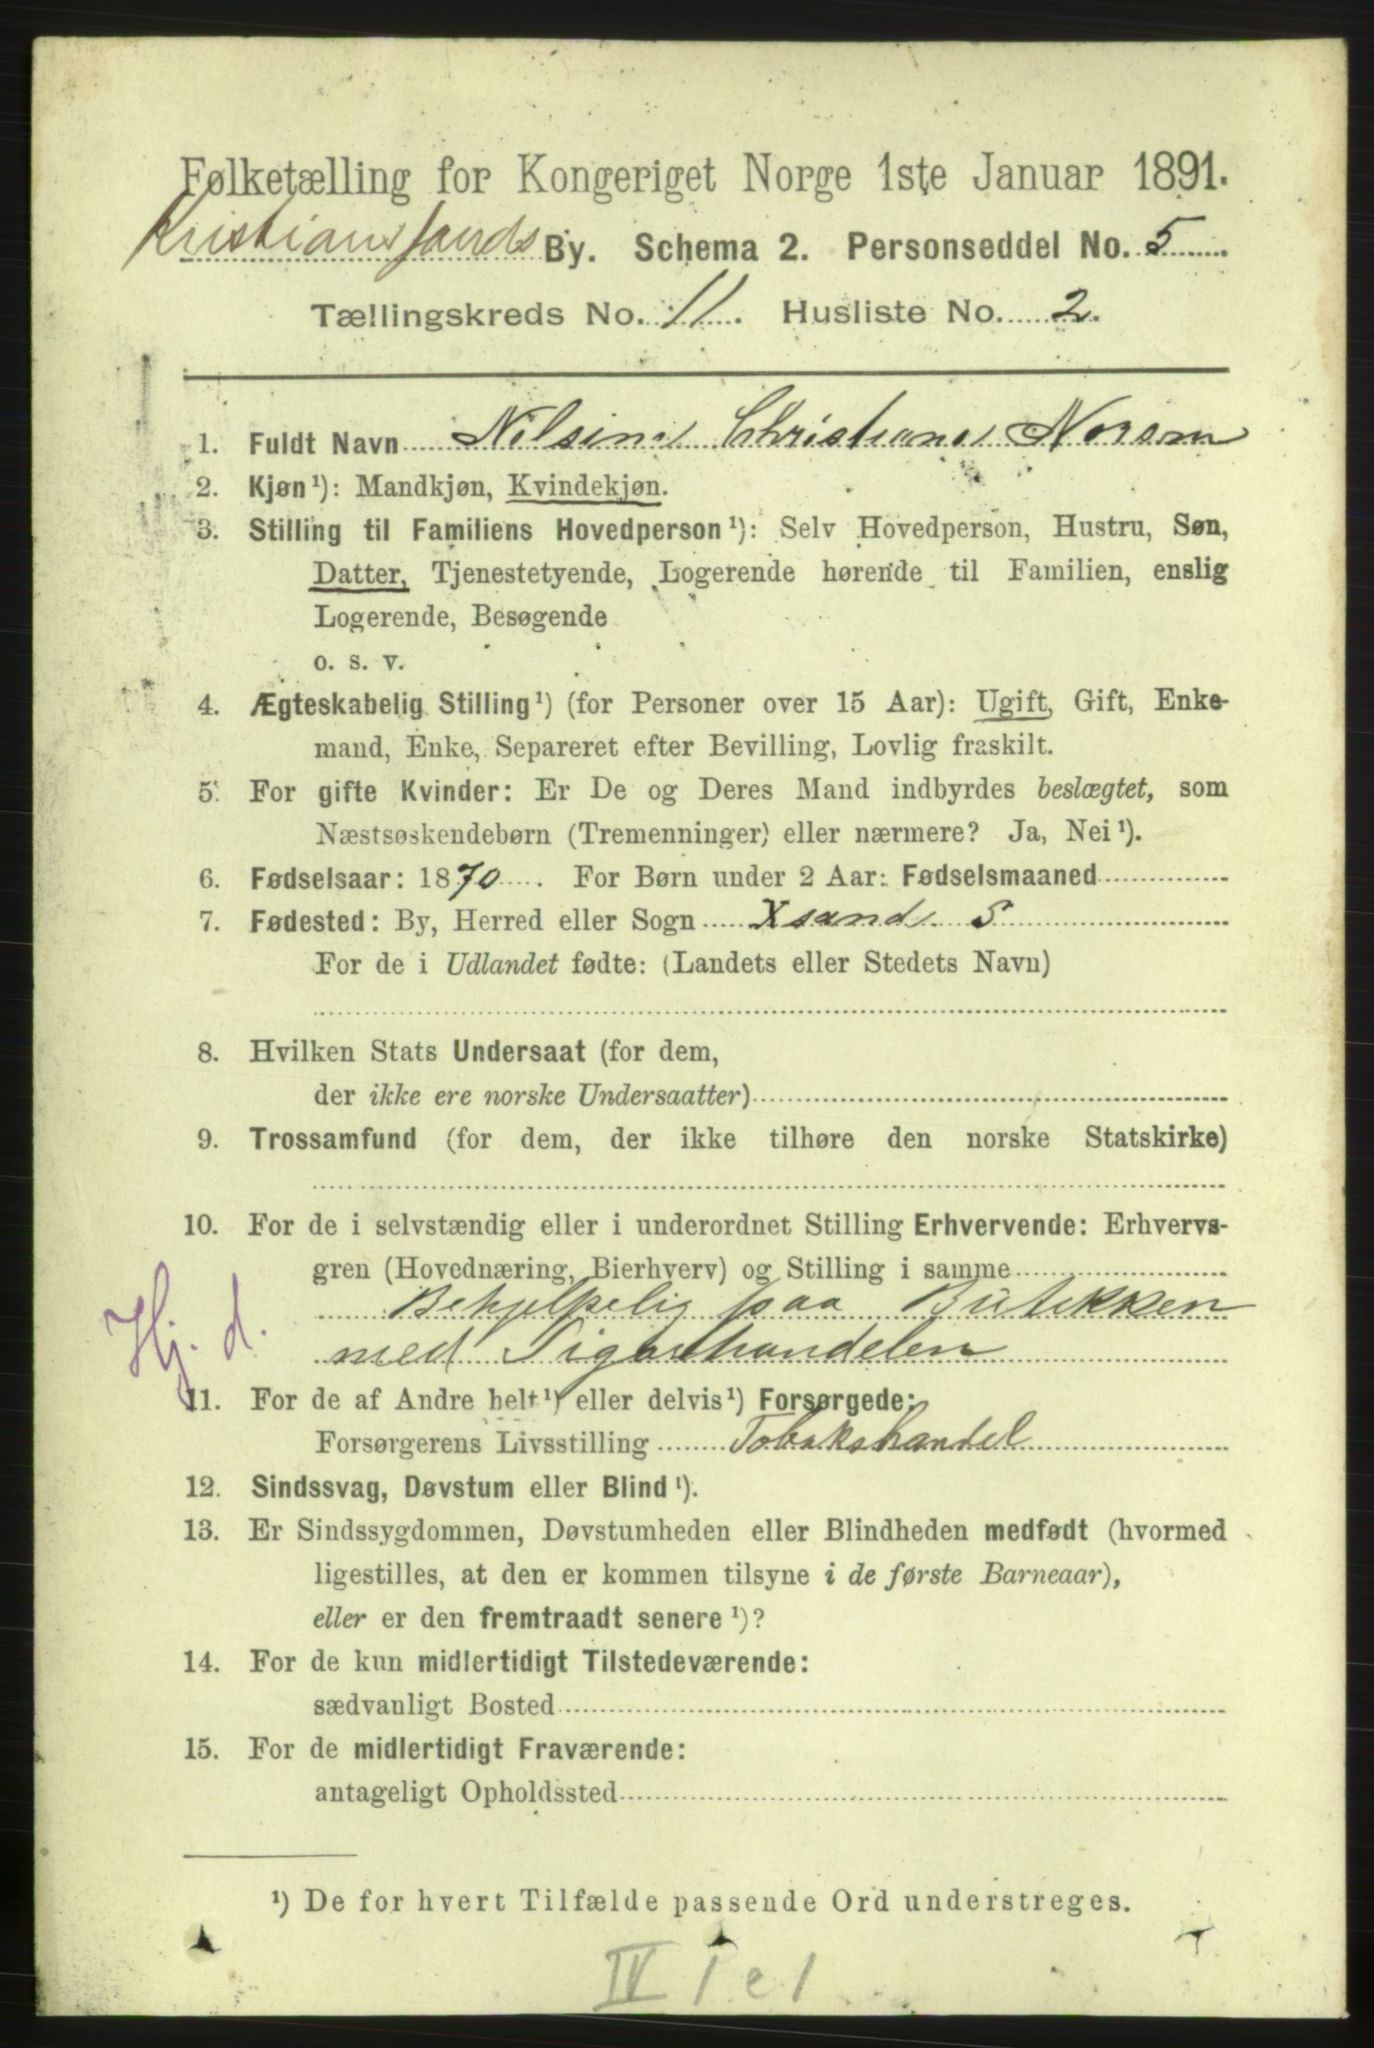 Folketælling for Kongeriget Norge 1ste Januar 1891.
Kristianssands By. Schema 2. Personseddel No. 5
Tællingskreds No. 11. Husliste No. 2.
1. Fuldt Navn Nilsine Christiane Norsen
2. Kjøn¹): Mandkjøn, Kvindekjøn.
3. Stilling til Familiens Hovedperson¹): Selv Hovedperson, Hustru, Søn,
Datter, Tjenestetyende, Logerende hørende til Familien, enslig
Logerende, Besøgende
o. s. v.
4. Ægteskabelig Stilling¹) (for Personer over 15 Aar): Ugift, Gift, Enke-
mand, Enke, Separeret efter Bevilling, Lovlig fraskilt.
5. For gifte Kvinder: Er De og Deres Mand indbyrdes beslægtet, som
Næstsøskendebørn (Tremenninger) eller nærmere? Ja, Nei¹).
6. Fødselsaar: 1870. For Børn under 2 Aar: Fødselsmaaned
7. Fødested: By, Herred eller Sogn Xsand S
For de i Udlandet fødte: (Landets eller Stedets Navn)
8. Hvilken Stats Undersaat (for dem,
der ikke ere norske Undersaatter)
9. Trossamfund (for dem, der ikke tilhøre den norske Statskirke)
10. For de i selvstændig eller i underordnet Stilling Erhvervende: Erhvervs-
gren (Hovednæring, Bierhverv) og Stilling i samme
Behjelpelig paa Butikken
Hj. d.
med Sigarhandelen
11. For de af Andre helt¹) eller delvis¹) Forsørgede:
Forsørgerens Livsstilling Tobakshandel
12. Sindssvag, Døvstum eller Blind¹).
13. Er Sindssygdommen, Døvstumheden eller Blindheden medfødt (hvormed
ligestilles, at den er kommen tilsyne i de første Barneaar),
eller er den fremtraadt senere¹)?
14. For de kun midlertidigt Tilstedeværende:
sædvanligt Bosted
15. For de midlertidigt Fraværende:
antageligt Opholdssted
¹) De for hvert Tilfælde passende Ord understreges.
IV 1 e 1